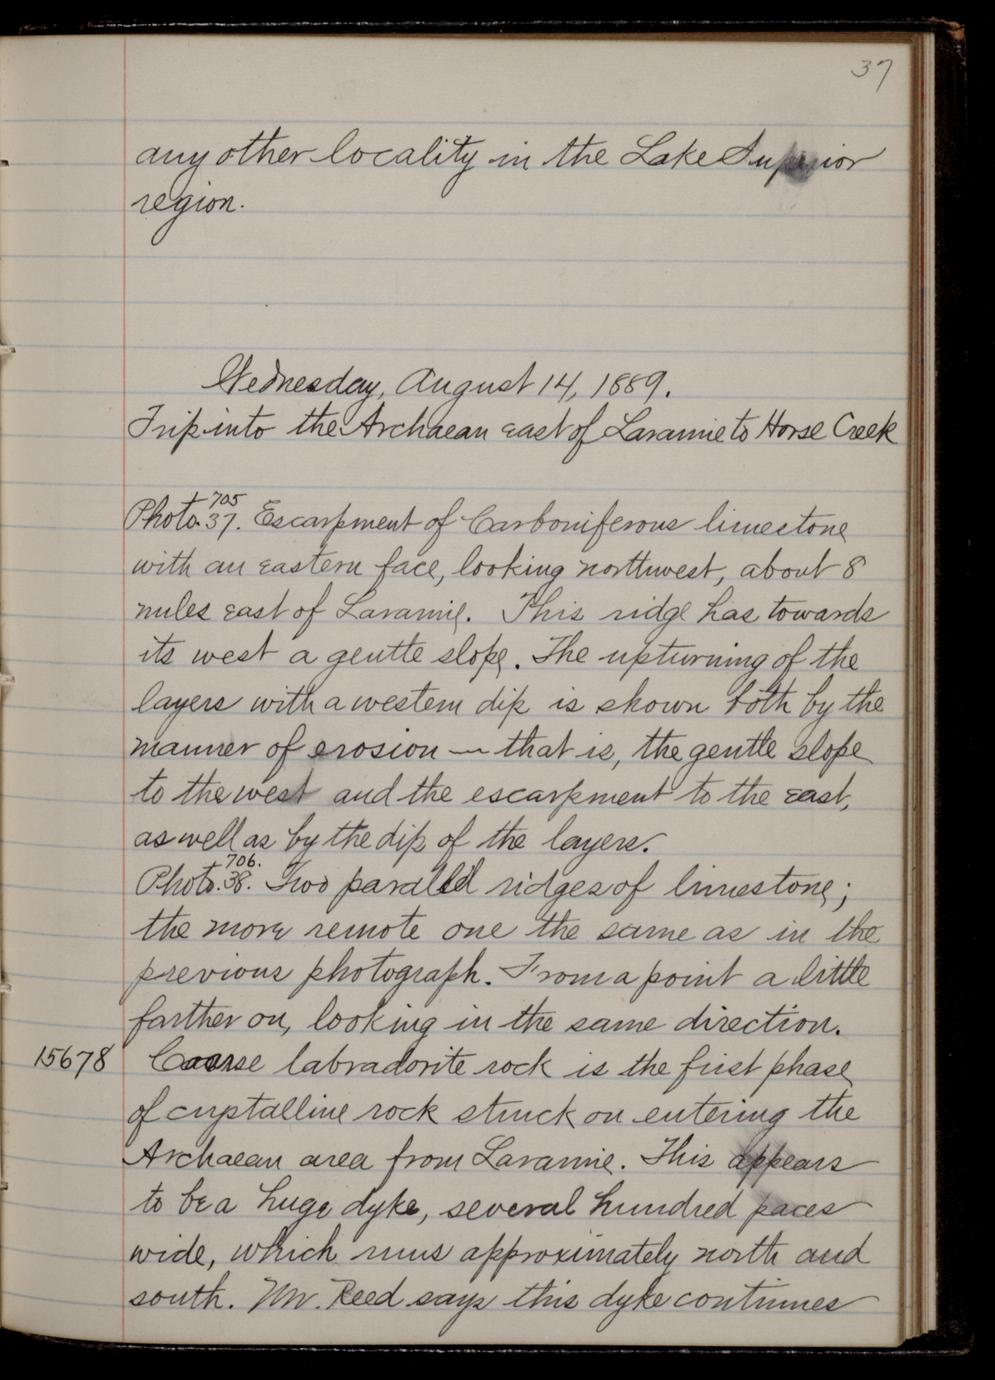 37
any other locality in the Lake Superior
region.
Wednesday, August 14, 1889.
Trip into the Archaean east of Laramie to Horse Creek
705
Photo. 37. Escarpment of Carboniferous limestone
with an eastern face, looking northwest, about 8
miles east of Laramie. This ridge has towards
its west a gentle slope. The upturning of the
layers with a western dip is shown both by the
manner of erosion — that is, the gentle slope
to the west and the escarpment to the east,
as well as by the dip of the layers.
706.
Photo. 38. Two parallel ridges of limestone;
the more remote one the same as in the
previous photograph. From a point a little
farther on, looking in the same direction.
15678 Coarse labradorite rock is the first phase
of crystalline rock struck on entering the
Archaean area from Laramie. This appears
to be a huge dyke, several hundred paces
wide, which runs approximately north and
south. Mr. Reed says this dyke continues